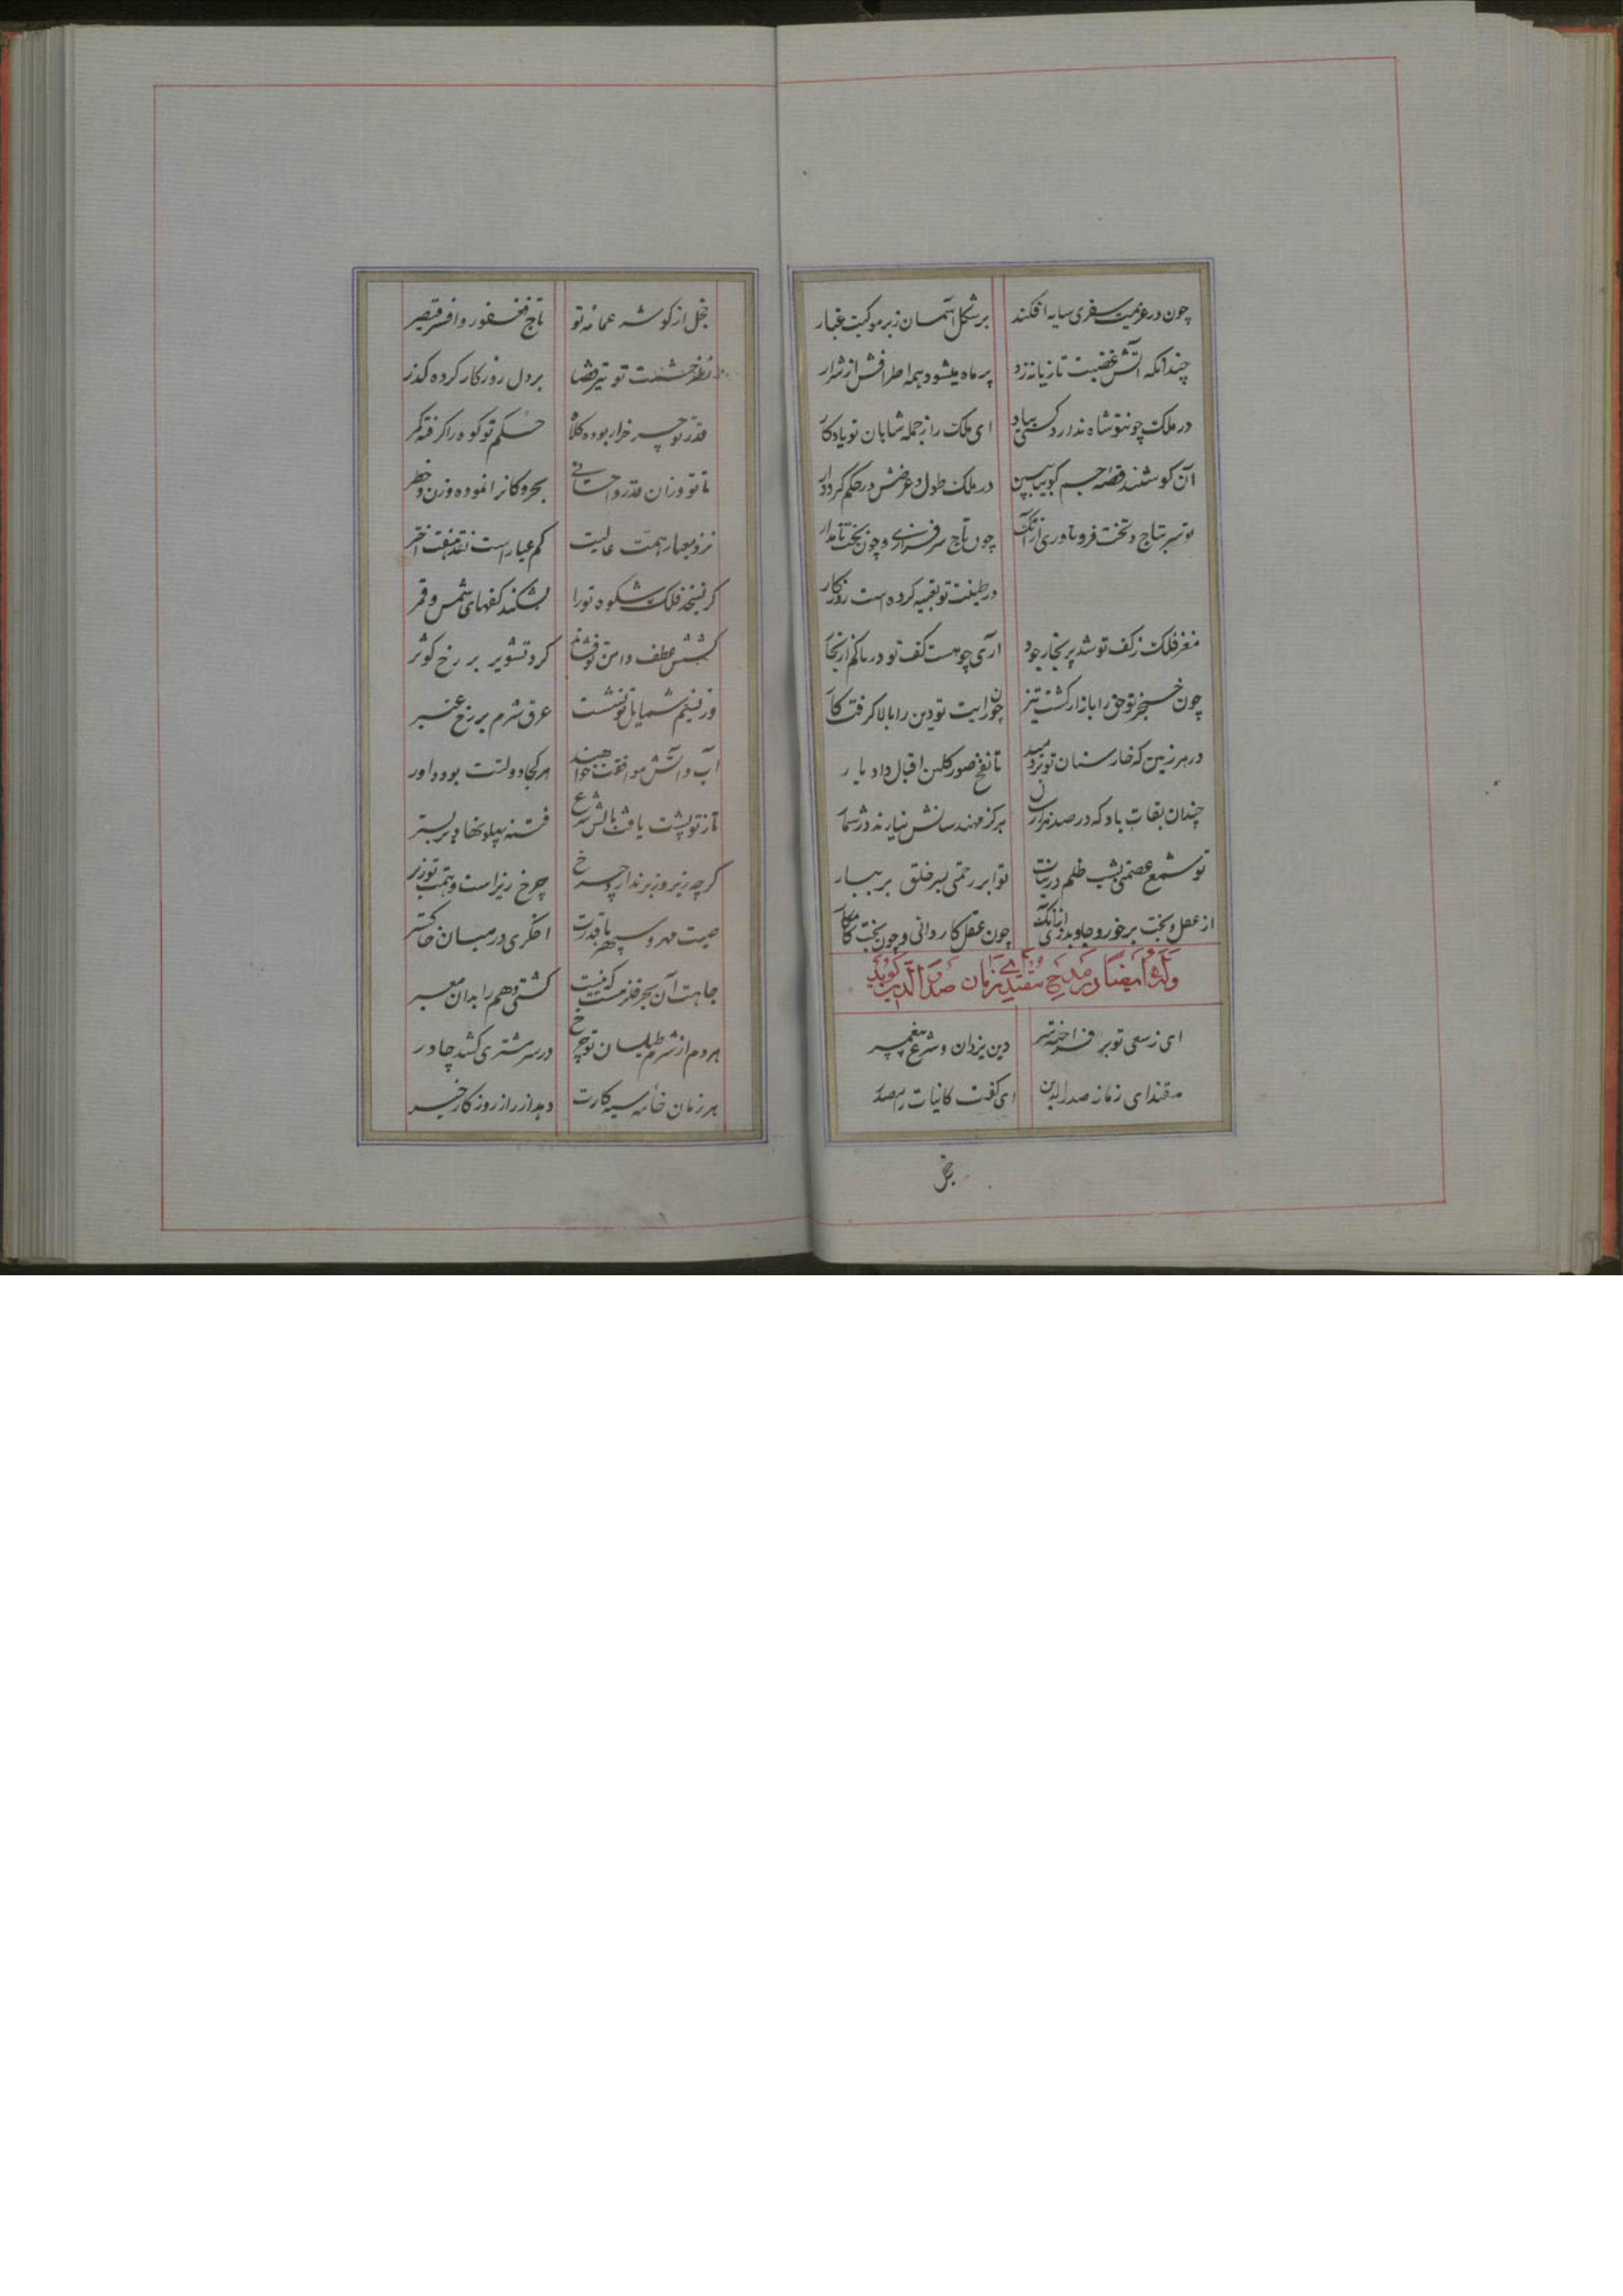 چون در عزیمت سفری سایه افکند بر شکل آسمان زبر موکبت غبار
چندانکه آتش غضبت تازیانه زد پر ماه میشود همه اطرافش از شرار
در ملک چونتو شاه ندارد کسی بیاد ای ملک را ز جمله شاهان تو یادگار
آن کو شنید قصه جم گو بیا ببین در ملک طول و عرضش و در حکم گیر و دار
تو سر بتاج و تخت فرو ناوری از آنک چون تاج سرفرازی و چون تخت تاجدار
در طینت تو تعبیه کرده است روزگار
مغز فلک ز کف تو شد پر بخار جود آری چو هست کف تو دریا کم از بخار
چون خنجر تو حق را بازار گشت تیز چون رایت تو دین را بالا گرفت کار
در هر زمین که خار سنان تو بردمید تا نفخ صور گلبن اقبال داد بار
چندان بقات باد که در صد هزار سال هرگز مهندسانش نیارند در شمار
تو شمع عصمتی بشب ظلم در بتاب تو ابر رحمتی بسر خلق بر ببار
از عقل و بخت بر خور و جاوید زی از آنک چون عقل کاردانی و چون بخت کامکار
وله ایضا در مدح مقتدای زمان صدر الدین گوید
ای ز سعی تو بر فراخته سر دین یزدان و شرع پیغمبر
مقتدای زمانه صدر الدین ای کفت کاینات را مصدر
خجل
خجل از گوشه عمامه تو تاج فغفور و افسر قیصر
نظر خشمت تو تیر قضا بر دل روزگار کرده گذر
قدر تو چرخ را ربوده کلاه حکم تو کوه را گرفته کمر
با تو وزان قدر و احسانی بحر و کانرا نموده وزن و خطر
نزد معیار همت عالیت کم عیار است نقد هفت اختر
گر نسنجد فلک شکوه تو را بشکند کفهای شمس و قمر
گشتش عطف دامن تو فشاند گرد تشویر بر رخ کوثر
وز نسیم شمایل تو نشست عرق شرم بر رخ عنبر
آب و آتش موافقت خواهند هر کجا دولتت بود داور
تا ز تو پشت یافت بالش شرع فتنه پهلو نهاد بر بستر
گرچه زیر و زبر ندارد چرخ چرخ زیر است و همت تو زبر
چیست مهر و سپهر با قدرت اخگری در میان خاکستر
جاهت آن بحر قلزمست که نیست کشتی وهم را بدان معبر
هر دم از شرم طیلسان تو چرخ در سر مشتری کشد چادر
هر زمان خامه سیه کارت دهد از راز روزگار خبر